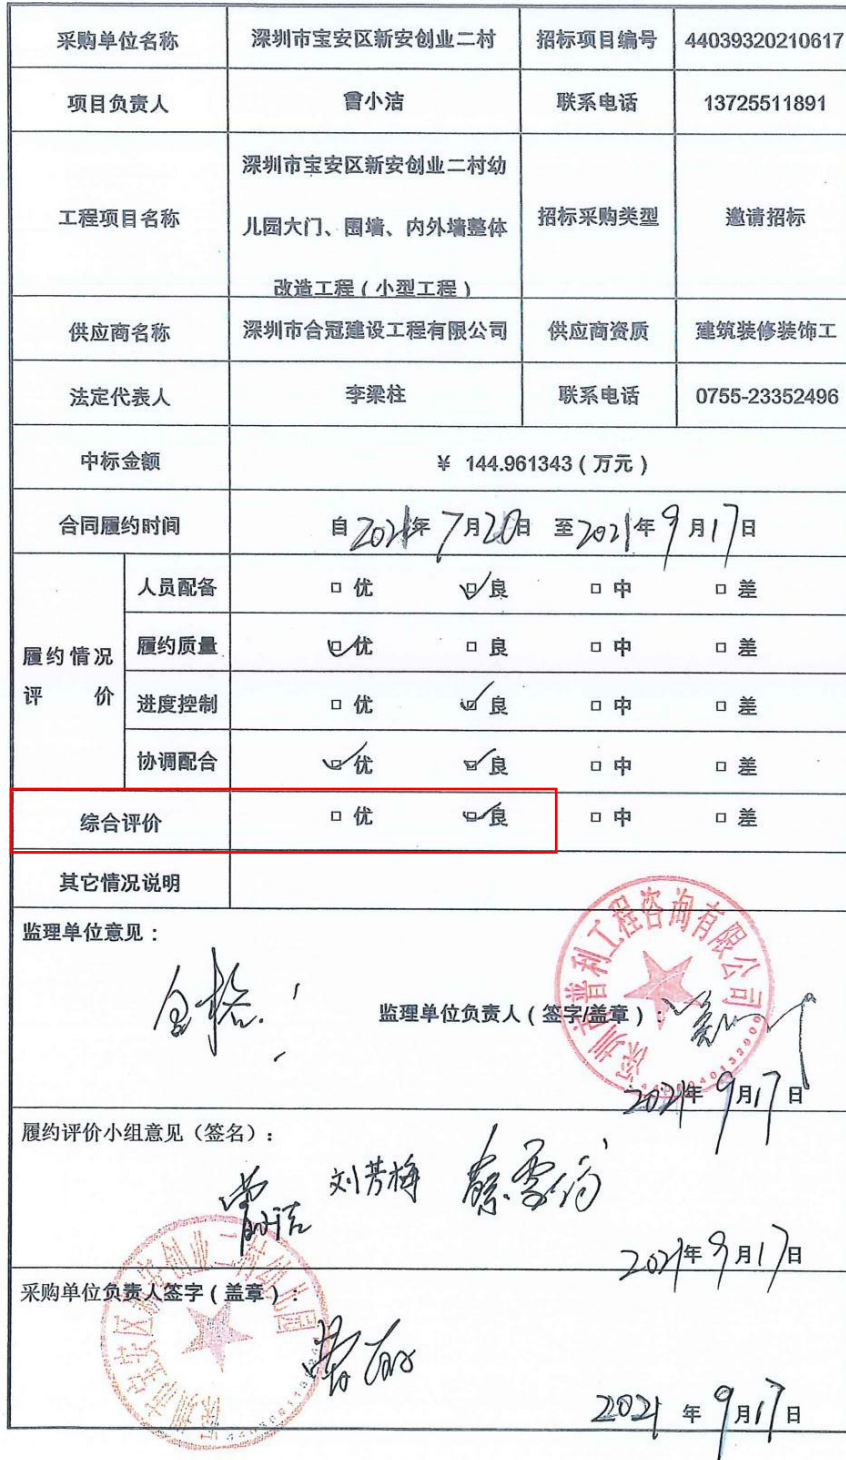 采购单位名称 深圳市宝安区新安创业二村 招标项目编号 44039320210617
项目负责人 曾小洁 联系电话 13725511891
深圳市宝安区新安创业二村幼
工程项目名称 儿园大门、围墙、内外墙整体 招标采购类型 邀请招标
改造工程（小型工程）
供应商名称 深圳市合冠建设工程有限公司 供应商资质 建筑装修装饰工
法定代表人 李梁柱 联系电话 0755-23352496
中标金额 ¥ 144.961343（万元）
合同履约时间 自2021年7月20日 至2021年9月17日
履约情况
评 价
人员配备 □ 优 ☑ 良 □ 中 □ 差
履约质量 ☑ 优 □ 良 □ 中 □ 差
进度控制 □ 优 ☑ 良 □ 中 □ 差
协调配合 ☑ 优 ☑ 良 □ 中 □ 差
综合评价 □ 优 ☑ 良 □ 中 □ 差
其它情况说明
监理单位意见：
合格.
监理单位负责人（签字/盖章）：
2021年9月17日
履约评价小组意见（签名）：
刘芳梅
2021年9月17日
采购单位负责人签字（盖章）：
2021年9月17日